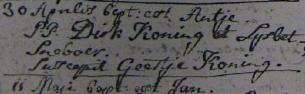 30 Aprilis bapt: est Antje.
P.P. Dirk Koning et Lysbet
Seeboer.
Suscepit Geertje Koning.
11 Maji bapt: est Jan.